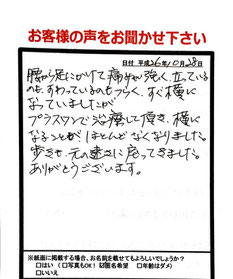 お客様の声をお聞かせ下さい
日付 平成26年10月28日
腰から足にかけて痛みが強く、立っている
のも、すわっているのもつらく、すぐ横に
なっていましたが
プラスタンで治療して頂き、横に
なることがほとんどなくなりました。
歩きも、元の速さに戻ってきました。
ありがとうございます。
※紙面に掲載する場合、お名前を載せてもよろしいでしょうか?
□はい (□写真もOK! ☑匿名希望 □年齢はダメ)
□いいえ